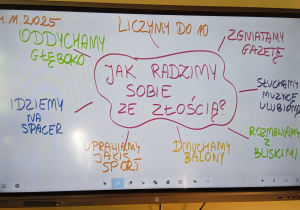 4.11.2025
LICZYMY DO 10
ODDYCHAMY
GŁĘBOKO
ZGNIATAMY
GAZETĘ
JAK RADZIMY
SOBIE
ZE ZŁOŚCIĄ?
SŁUCHAMY
MUZYKI
ULUBIONEJ
IDZIEMY
NA
SPACER
ROZMAWIAMY
Z
BLISKIMI
UPRAWIAMY
JAKIŚ
SPORT
DMUCHAMY
BALONY